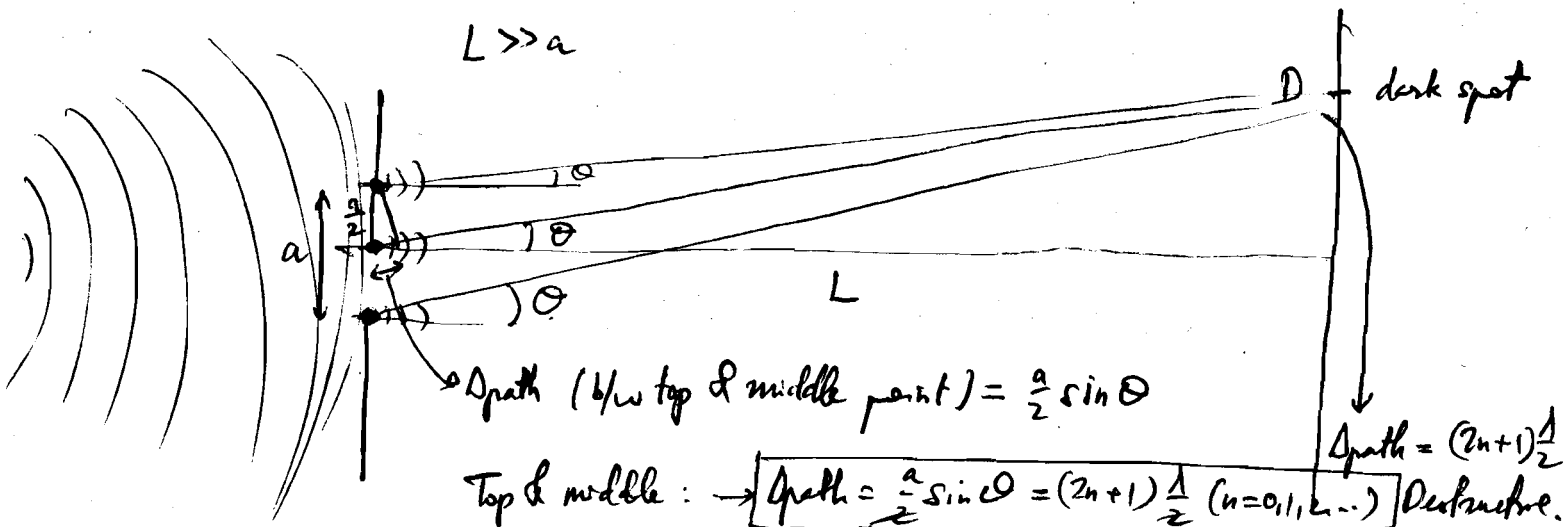 L >> a
D dark spot
θ
a/2
θ
a
L
θ
Δpath (b/w top & middle point) = a/2 sin θ
Δpath = (2n+1) λ/2
Top & middle : → Δpath = a/2 sin θ = (2n+1) λ/2 (n=0,1,2...) Destructive.